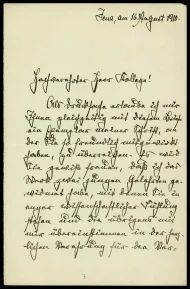 Jena, am 16. August 1910.
Hochverehrter Herr Kollege!
Als Drucksache erlaube ich mir
Ihnen gleichzeitig mit diesem Briefe
ein Exemplar meiner Schrift, an
der Sie so freundlich mitgewirkt
haben, zu übersenden. Es wird
Sie gewiss freuen, daß ich das
Werk zwei jungen Gelehrten ge-
widmet habe, mit denen Sie in
enger wissenschaftlicher Fühlung
stehen und die übrigens mit
mir übereinstimmen in der herz-
lichen Verehrung für den Ver-